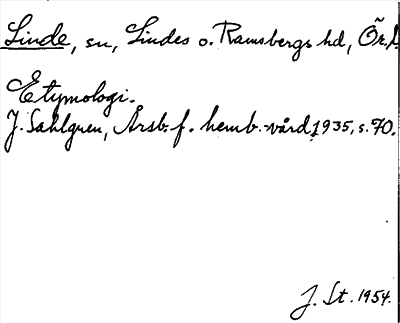 Linde, sn, Lindes o. Ramsbergs hd, Ör.l.
Etymologi.
J. Sahlgren, Årsb. f. hemb.-vård 1935, s. 70.
J. St. 1954.